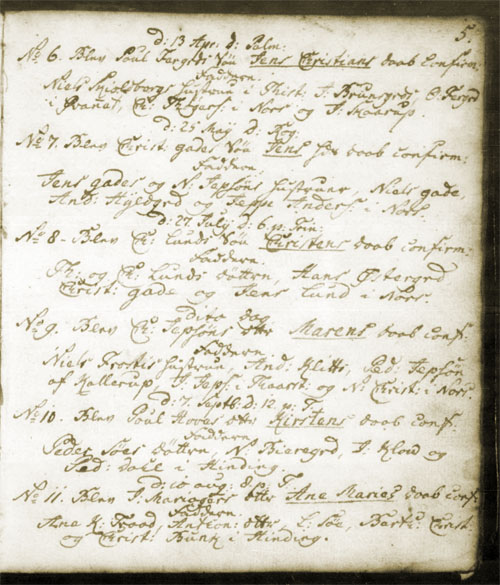 5
d: 13 Apr. d: Palm:
No 6. Blev Poul Søn Jens Christians daab Confirm:
Faddern.
Niels Hustrue i Thist: J. Brunsgrds,
i Ch: i Nors og J. Skaarup.
d: 25 May d: Rog:
No 7. Blev Christ: gades Søn Jens daab confirm:
Faddern.
Jens gades og N. Jepsøns Hustruer, Niels gade,
And: og Jeppe Anders: i Nors.
d: 27 July, d: 6 p: Trin:
No 8. Blev Ch: Lunds Søn Christens daab confirm:
Faddern.
Th: og Ch: Lunds døttre, Hans Østergrd
Christ: gade og Jens Lund i Nors.
dito dag
No 9. Blev Ch: Jepsøns dtr Marens daab conf:
Faddern.
Niels Hustrue, And: Klitts, Ped: Jepsøn
af Kallerup, J. Jeps: i og N: Christ: i Nors.
d: 7. Septb: d: 12 p: T.
No 10. Blev Poul dtr Kirstens daab conf.
Faddern
Peder Søes døttre, N. Bieregrd, J. Klow og
Ped: i Hinding.
d: 10 aug: 8 p: T.
No 11. Blev J. dtr Ane Maries daab conf:
Faddern.
Ane K: dtr, L: Søe, Christ:
og Christ: Bunk i Hinding.